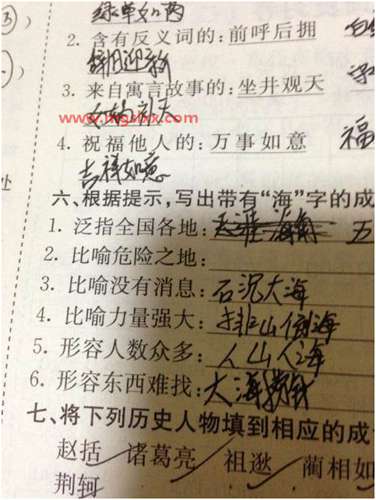 ③
绿草如茵
2. 含有反义词的：前呼后拥
辞旧迎新
3. 来自寓言故事的：坐井观天
www.mgsbx.com
4. 祝福他人的：万事如意 福
吉祥如意
处
六、根据提示，写出带有“海”字的成
1. 泛指全国各地：天涯海角 五
2. 比喻危险之地：
3. 比喻没有消息：石沉大海
4. 比喻力量强大：排山倒海
5. 形容人数众多：人山人海
6. 形容东西难找：大海捞针
七、将下列历史人物填到相应的成
赵括 诸葛亮 祖逖 蔺相如
荆轲